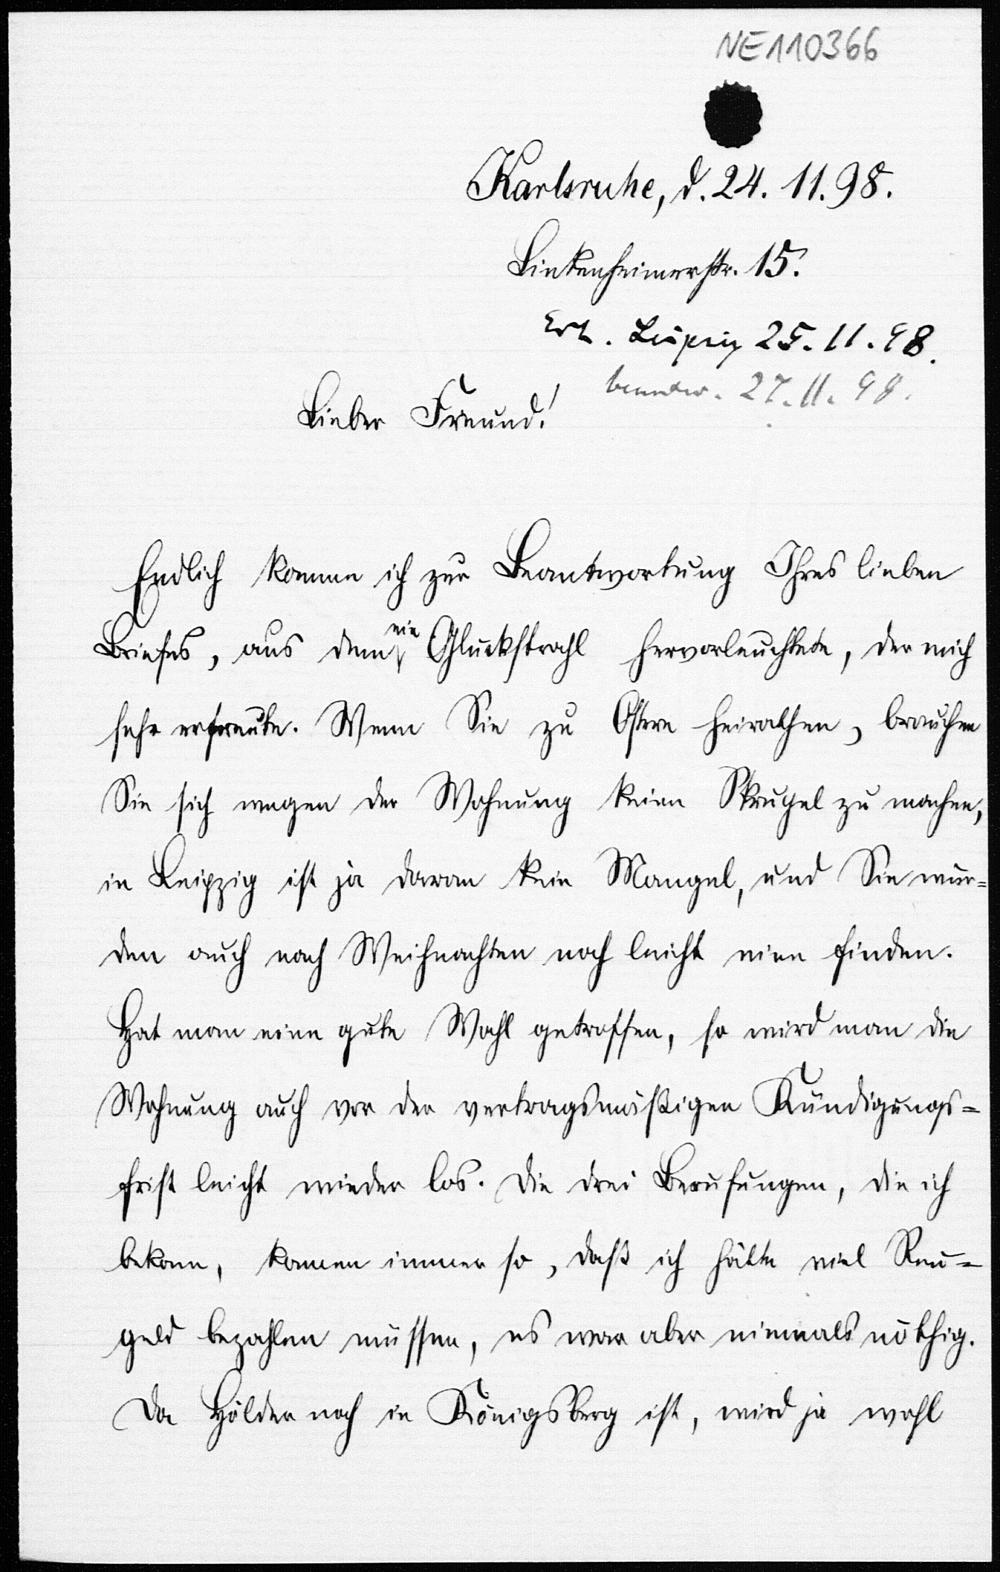 NE110366
Karlsruhe, d. 24. 11. 98.
Linkenheimerstr. 15.
Erh. Leipzig 25. 11. 98.
beantw. 27. 11. 98.
Lieber Freund!
Endlich komme ich zur Beantwortung Ihres lieben
Briefes, aus dem ein Glückstrahl hervorleuchtete, der mich
sehr erfreute. Wenn Sie zu Ostern heirathen, brauchen
Sie sich wegen der Wohnung keine Skrupel zu machen,
in Leipzig ist ja daran kein Mangel, und Sie wür=
den auch nach Weihnachten noch leicht eine finden.
Hat man eine gute Wahl getroffen, so wird man die
Wohnung auch vor der vertragsmäßigen Kündigungs=
frist leicht wieder los. Die drei Berufungen, die ich
bekam, kamen immer so, daß ich hätte viel Reu=
geld bezahlen müssen, es war aber niemals nöthig.
Da Hölder noch in Königsberg ist, wird ja wohl